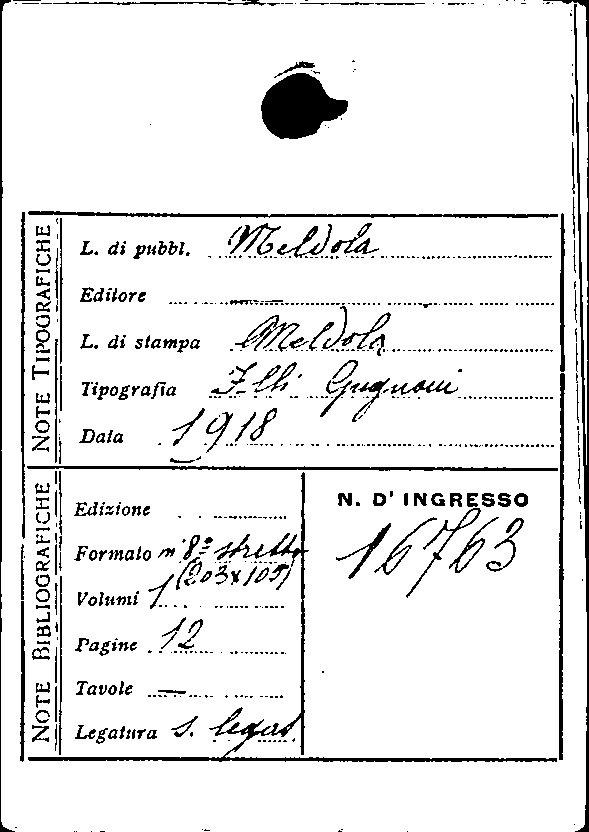 NOTE TIPOGRAFICHE
L. di pubbl. Meldola
Editore —
L. di stampa Meldola
Tipografia F.lli Gugnoni
Data 1918
NOTE BIBLIOGRAFICHE
Edizione
Formato in 8º stretto
(203x105)
Volumi 1
Pagine 12
Tavole —
Legatura s. legat.
N. D' INGRESSO
16763